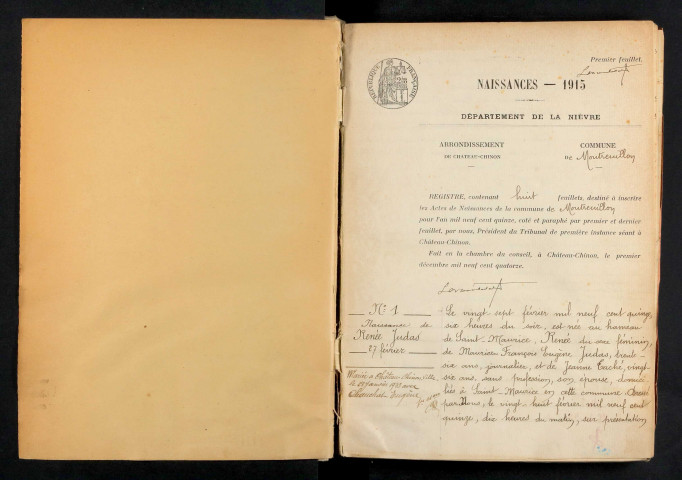 Premier feuillet.
RÉPUBLIQUE FRANÇAISE
NAISSANCES — 1915
DÉPARTEMENT DE LA NIÈVRE
ARRONDISSEMENT
DE CHATEAU-CHINON
COMMUNE
DE Montreuillon
REGISTRE, contenant huit feuillets, destiné à inscrire
les Actes de Naissances de la commune de Montreuillon
pour l'an mil neuf cent quinze, coté et paraphé par premier et dernier
feuillet, par nous, Président du Tribunal de première instance séant à
Château-Chinon.
Fait en la chambre du conseil, à Château-Chinon, le premier
décembre mil neuf cent quatorze.
N° 1
Naissance de
Renée Judas
27 février
Mariée à Château-Chinon, Ville
Le vingt sept février mil neuf cent quinze
six heures du soir, est née au hameau
de Saint-Maurice, Renée du sexe féminin,
de Maurice François Eugène Judas, trente-
six ans, journalier, et de Jeanne vingt-
six ans, sans profession, son épouse, domici-
liés à Saint-Maurice en cette commune. Dressé
par Nous, le vingt-huit février mil neuf cent
quinze, dix heures du matin, sur présentation